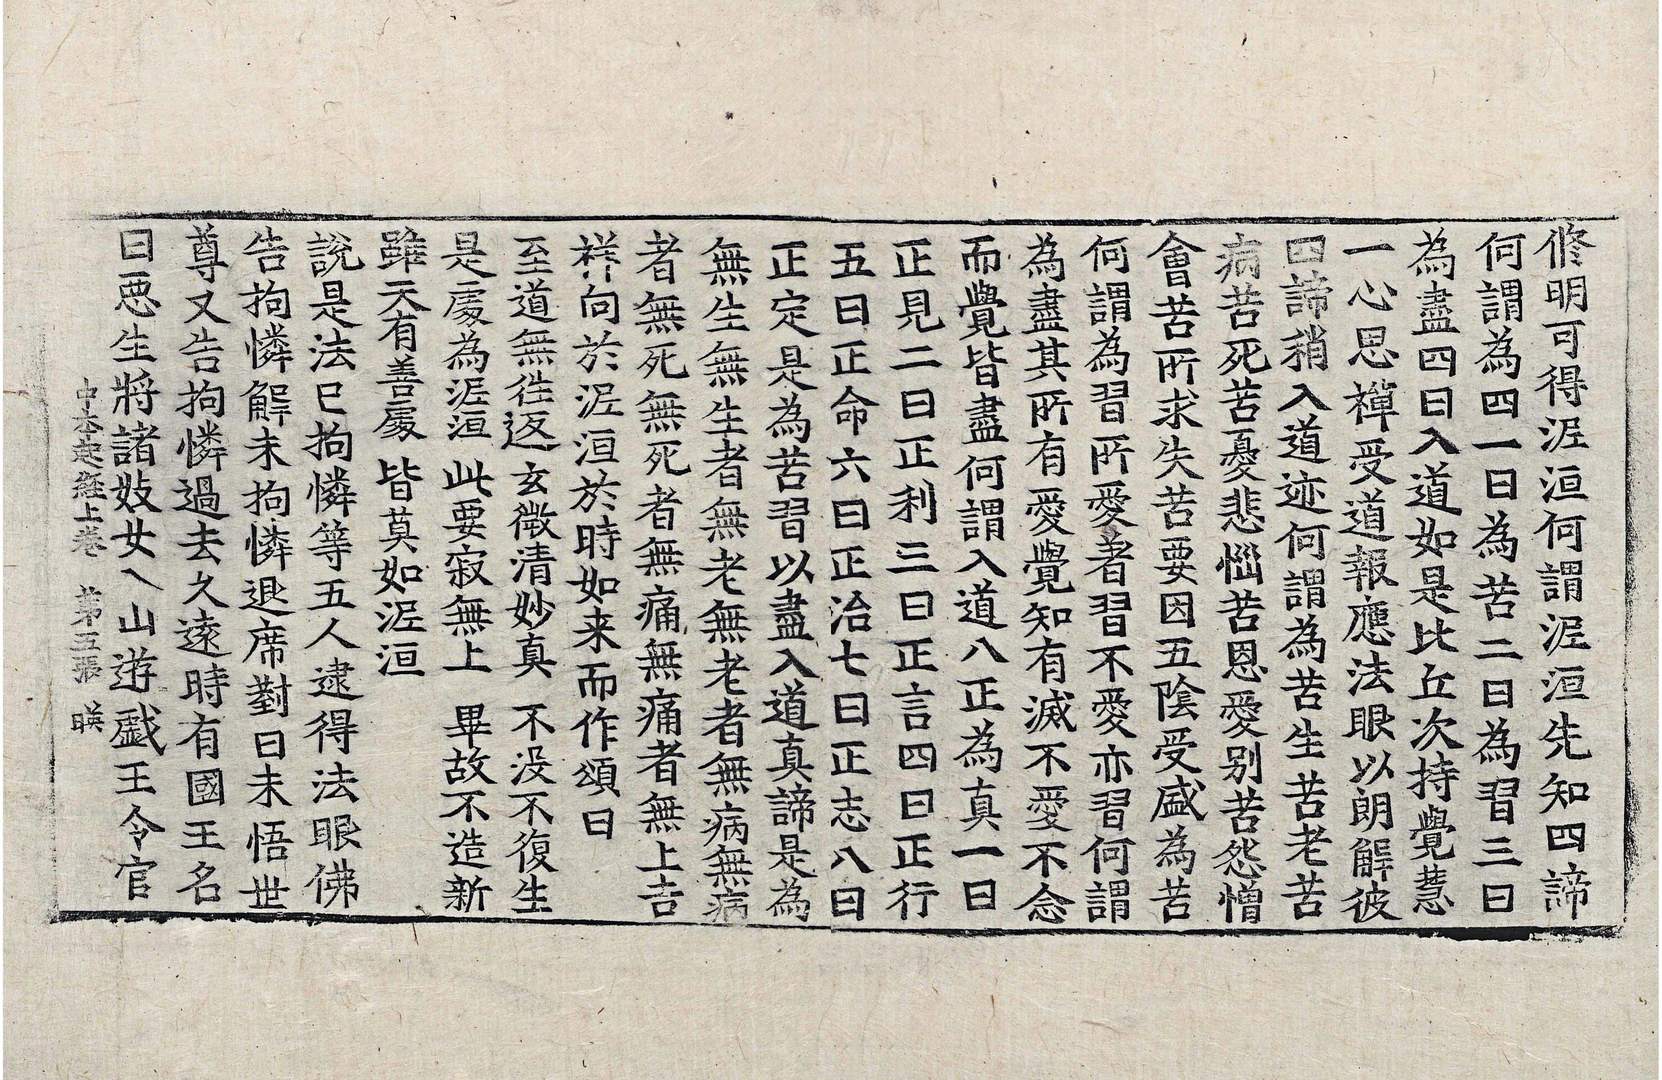 修明可得泥洹何謂泥洹先知四諦
何謂為四一曰為苦二曰為習三曰
為盡四曰入道如是比丘次持覺慧
一心思禪受道報應法眼以朗解彼
四諦稍入道迹何謂為苦生苦老苦
病苦死苦憂悲惱苦恩愛別苦怨憎
會苦所求失苦要因五陰受盛為苦
何謂為習所愛著習不愛亦習何謂
為盡其所有愛覺知有滅不愛不念
而覺皆盡何謂入道八正為真一曰
正見二曰正利三曰正言四曰正行
五曰正命六曰正治七曰正志八曰
正定是為苦習以盡入道真諦是為
無生無生者無老無老者無病無病
者無死無死者無痛無痛者無上吉
祥向於泥洹於時如来而作頌曰
至道無往返 玄微清妙真 不没不復生
是處為泥洹 此要寂無上 畢故不造新
雖天有善處 皆莫如泥洹
說是法已拘憐等五人逮得法眼佛
告拘憐解未拘憐退席對曰未悟世
尊又告拘憐過去久遠時有國王名
曰惡生將諸妓女入山遊戲王令官
中本起經上卷 第五張 暎